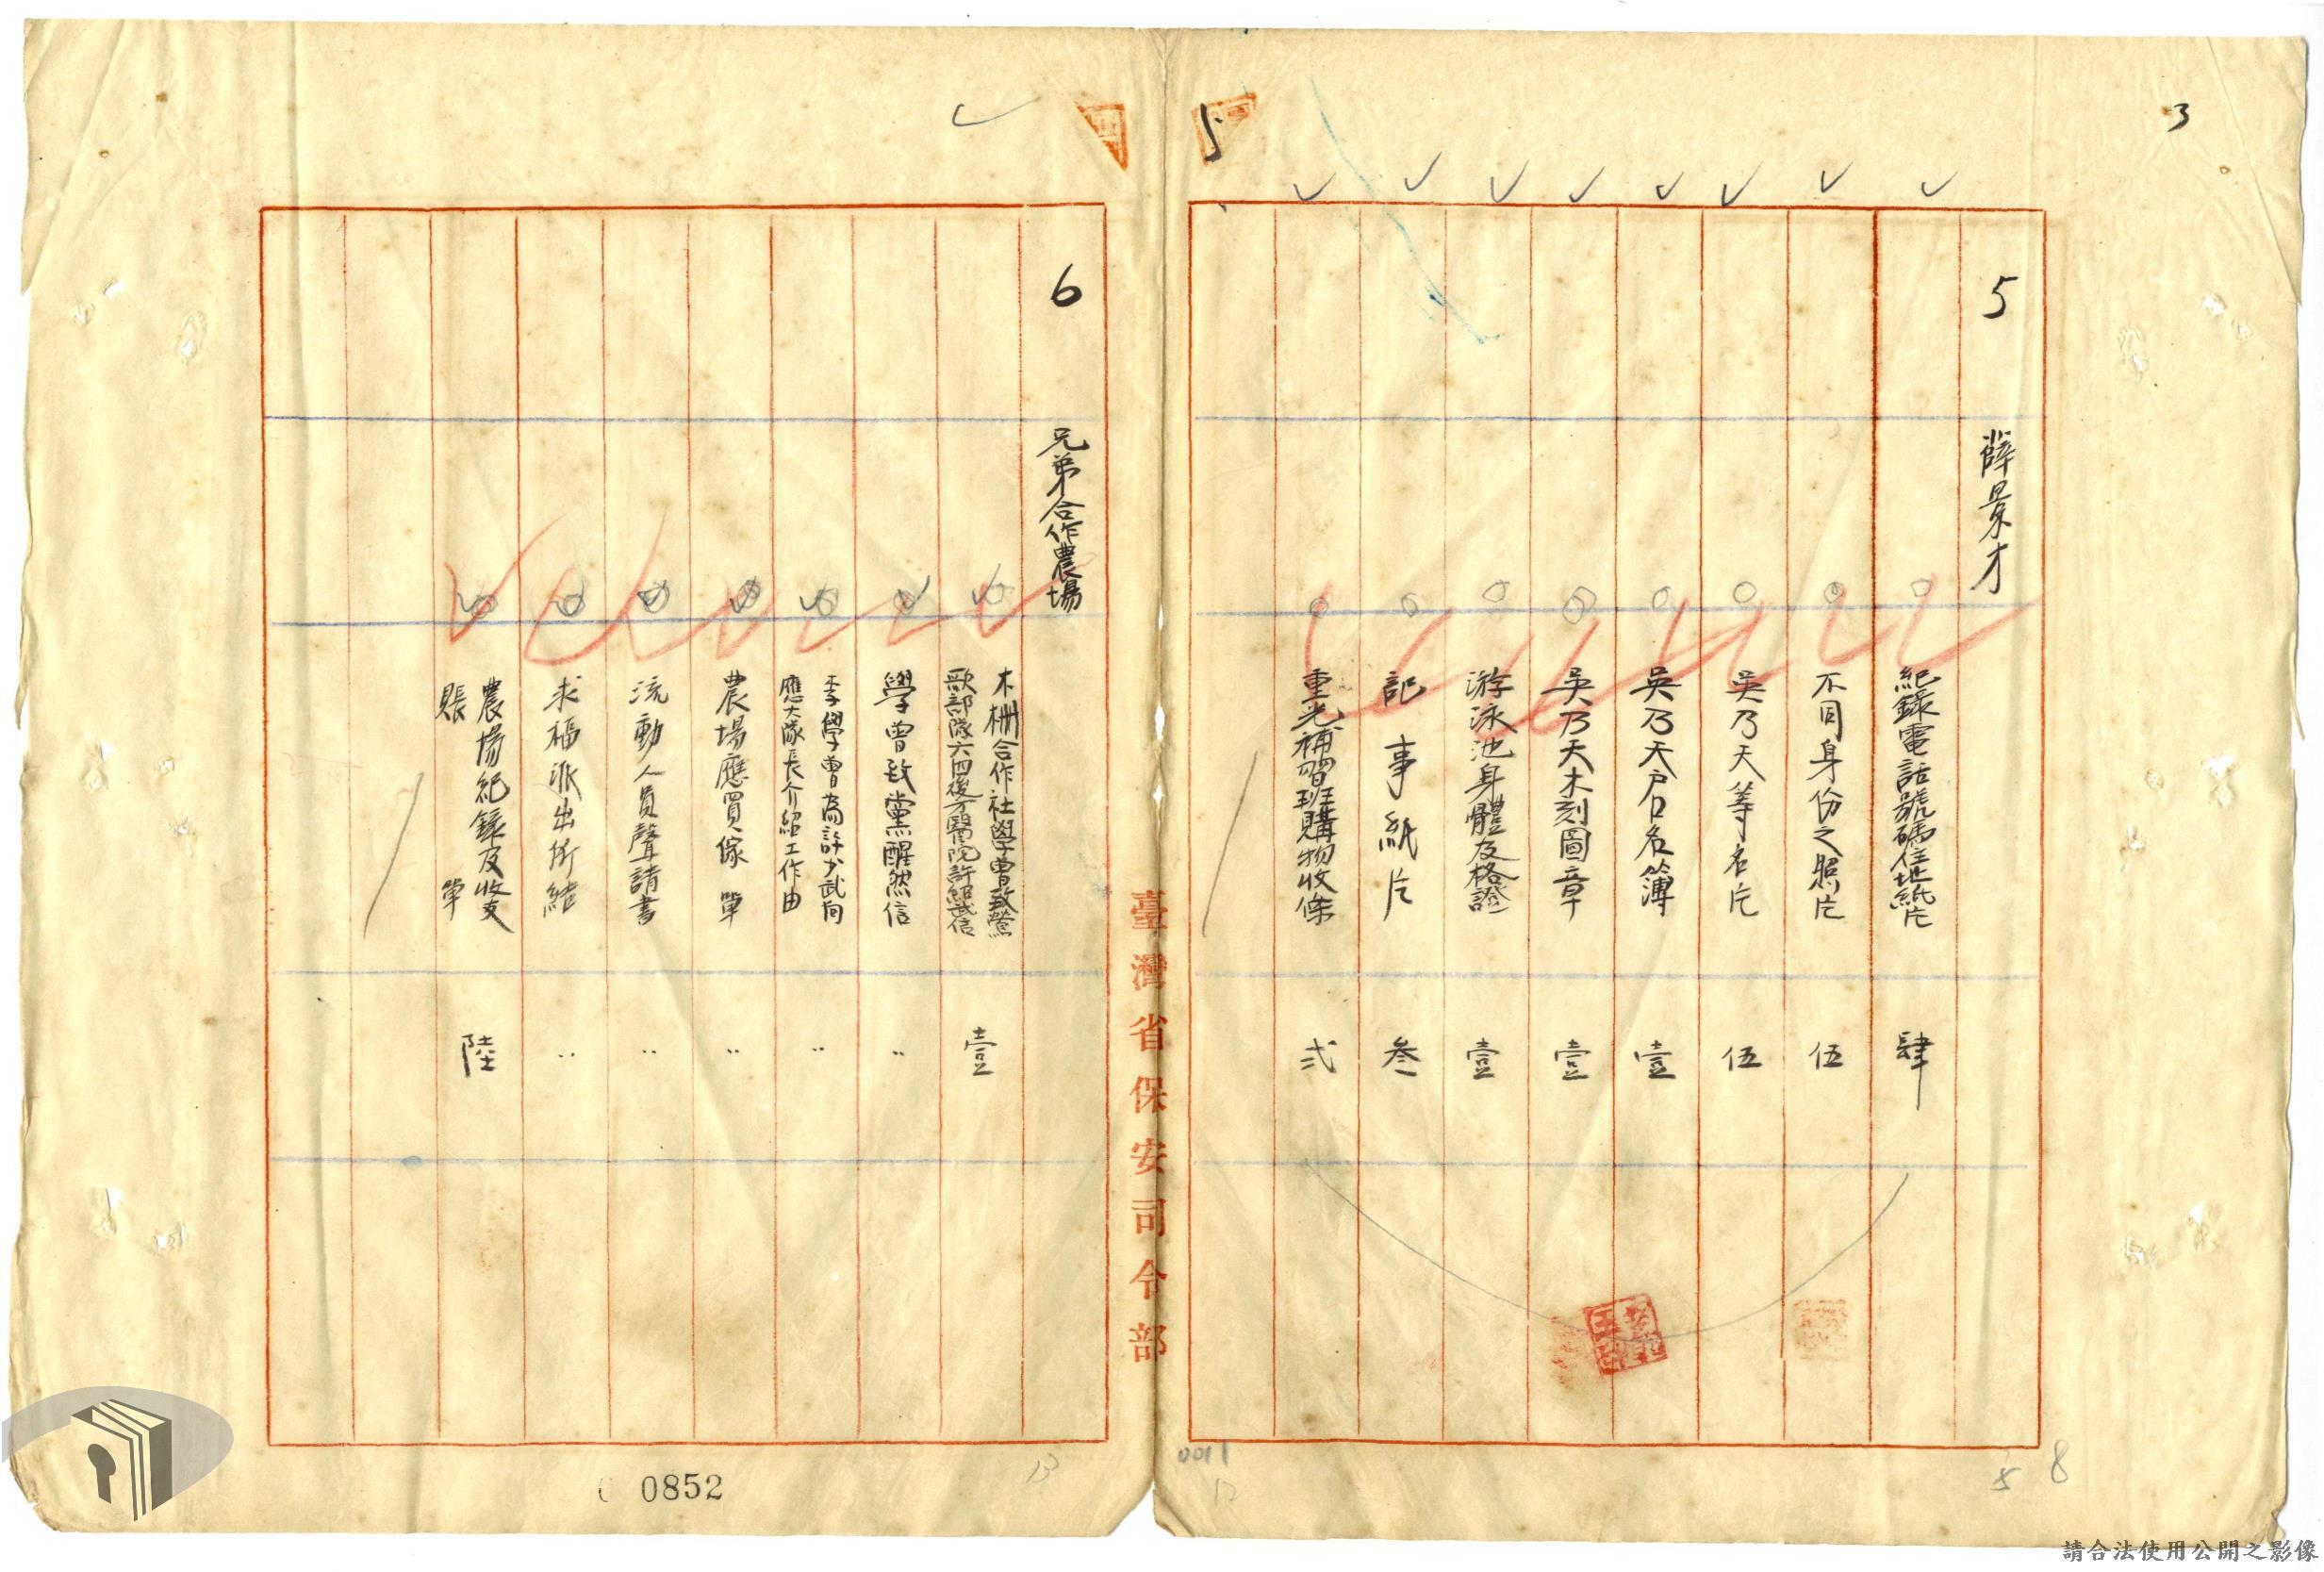 3
5
5
薛景才
紀錄電話號碼住址紙片
肆
不同身份之照片
伍
吳乃天等名片
伍
吳乃天戶口名簿
壹
吳乃天木刻圖章
壹
游泳池身體及格證
壹
記事紙片
叁
重光補習班購物收條
弍
臺灣省保安司令部
6
兄弟合作農場
木柵合作社學曾致
部隊六四後方醫院許紹武信
壹
學曾致黨醒然信
〃
李學曾為許少武向
應大隊長介紹工作由
〃
農場應買傢單
〃
流動人員聲請書
〃
求福派出所結
〃
農場紀錄及收支
賬單
陸
0852
0011
12
13
8
8
請合法使用公開之影像